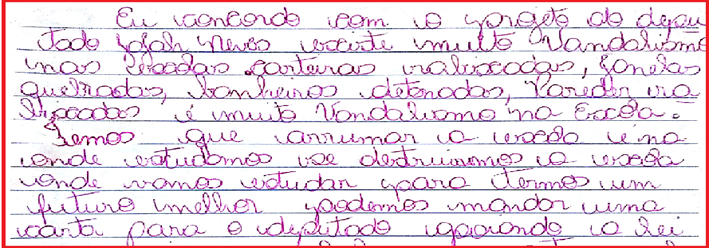 Eu concordo com o projeto do depu
tado Jofah Neves existe muito Vandalismo
nas Escolas carteiras rabiscadas, janelas
quebradas, banheiros detonados, Paredes ra
biscados é muito Vandalismo na Escola.
Temos que arrumar a escola é na
onde estudamos se destruirmos a escola
onde vamos estudar para termos um
futuro melhor podemos mandar uma
carta para o deputado apoiando a lei